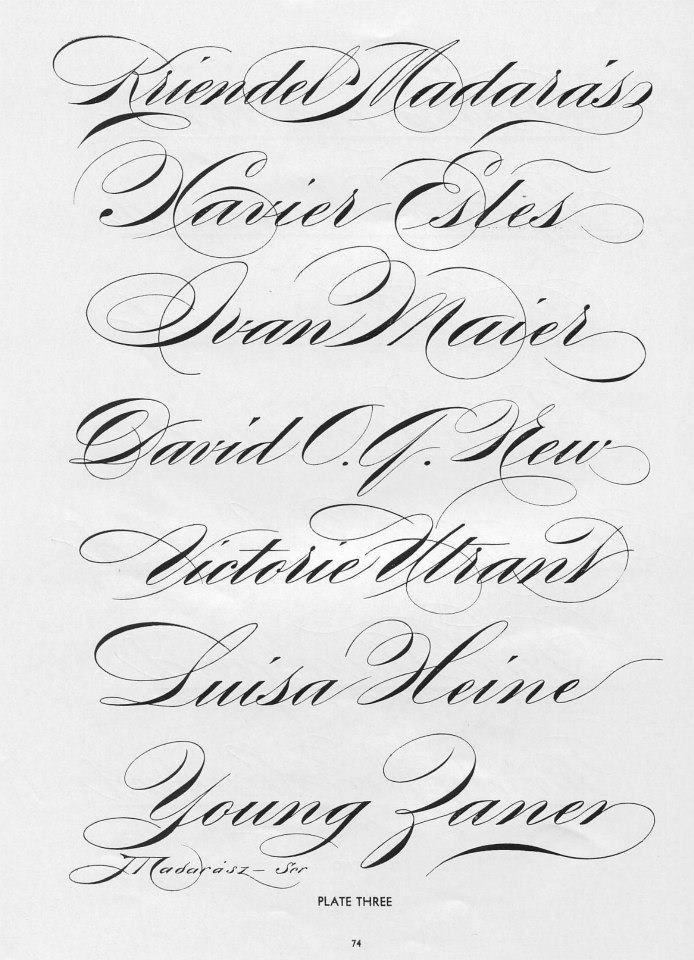 Kriendel Madarász
Xavier Estes
Ivan Maier
David O. G. New
Victorie Utrant
Luisa Heine
Young Zaner
Madarász – Scr
PLATE THREE
74